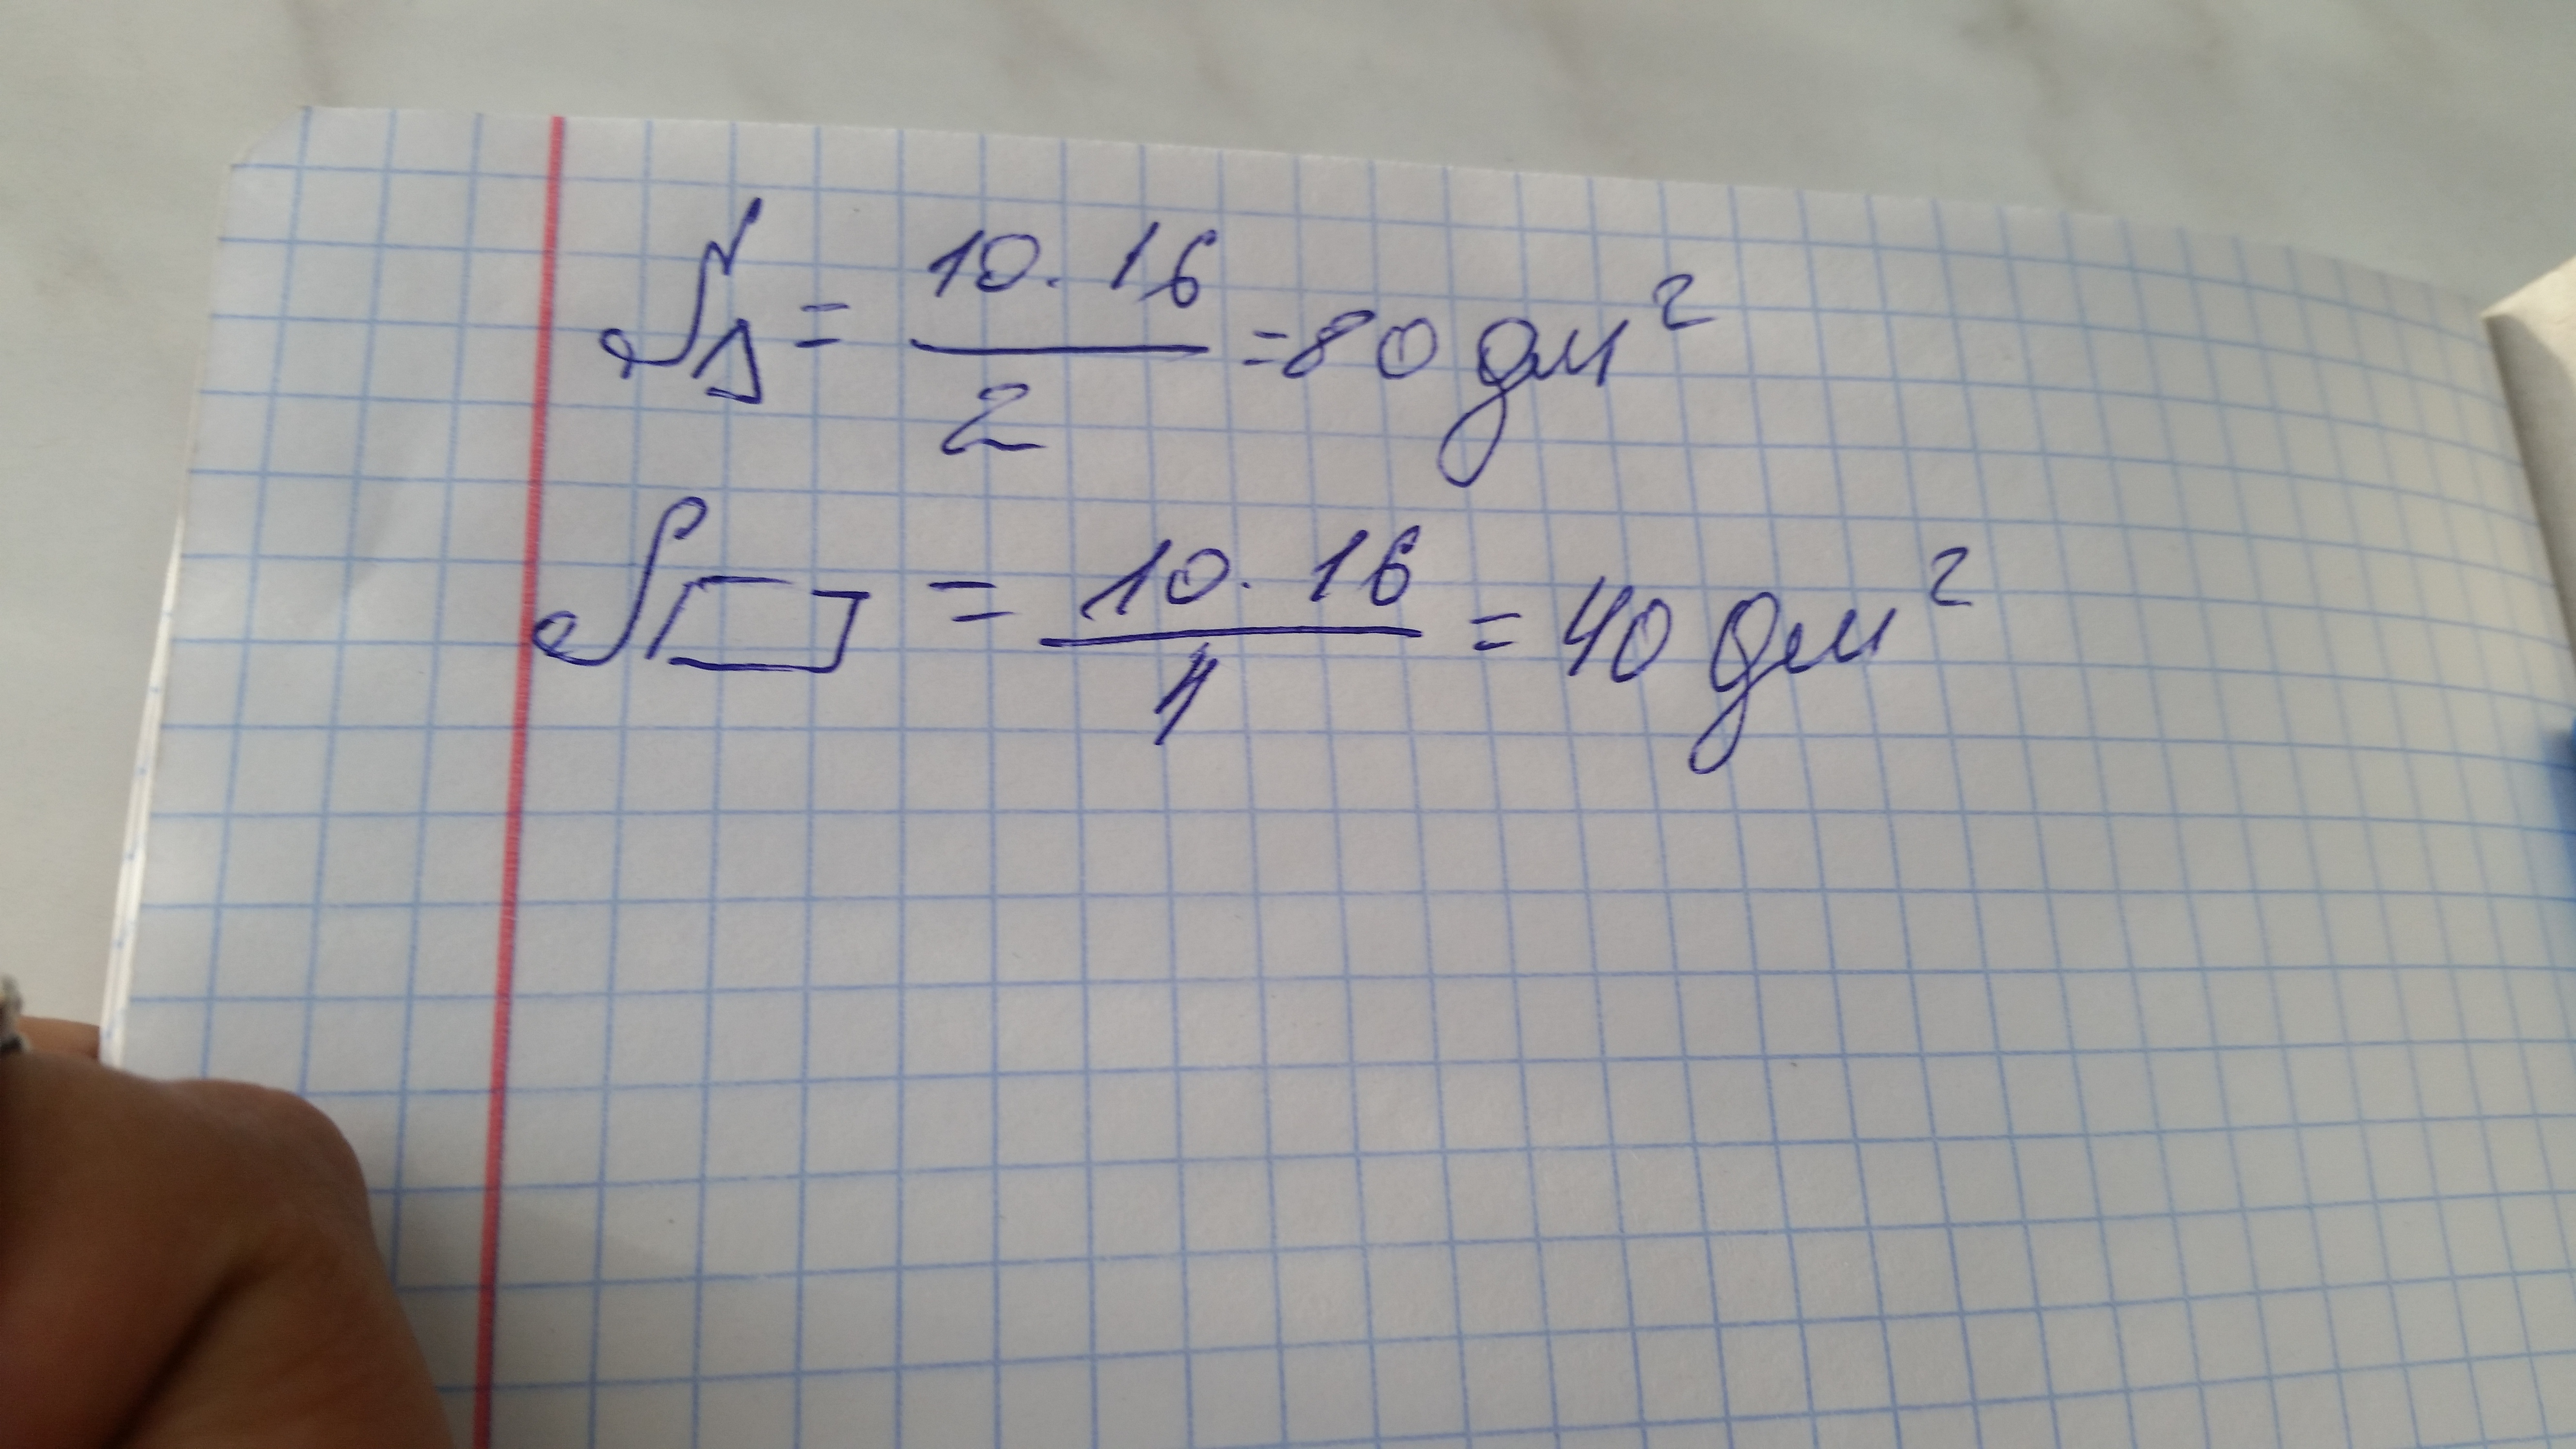 S△ = 10 · 16 / 2 = 80 дм²
S▱ = 10 · 16 / 4 = 40 дм²